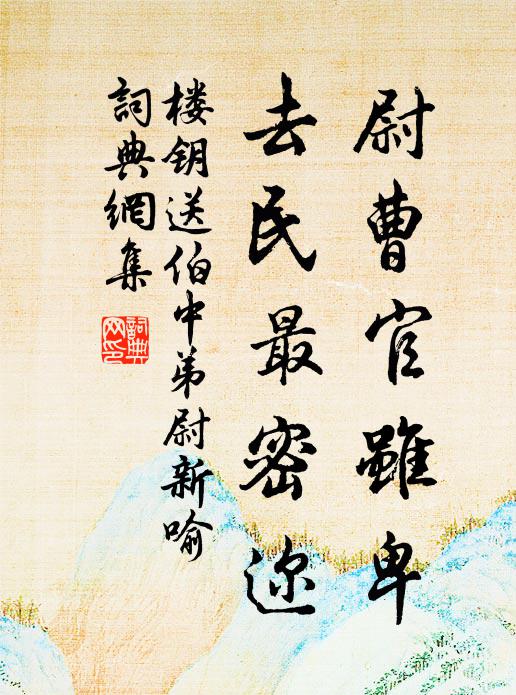 尉曹官雖卑
去民最密迩
楼钥送伯中弟尉新喻
詞典網集
詞典网印